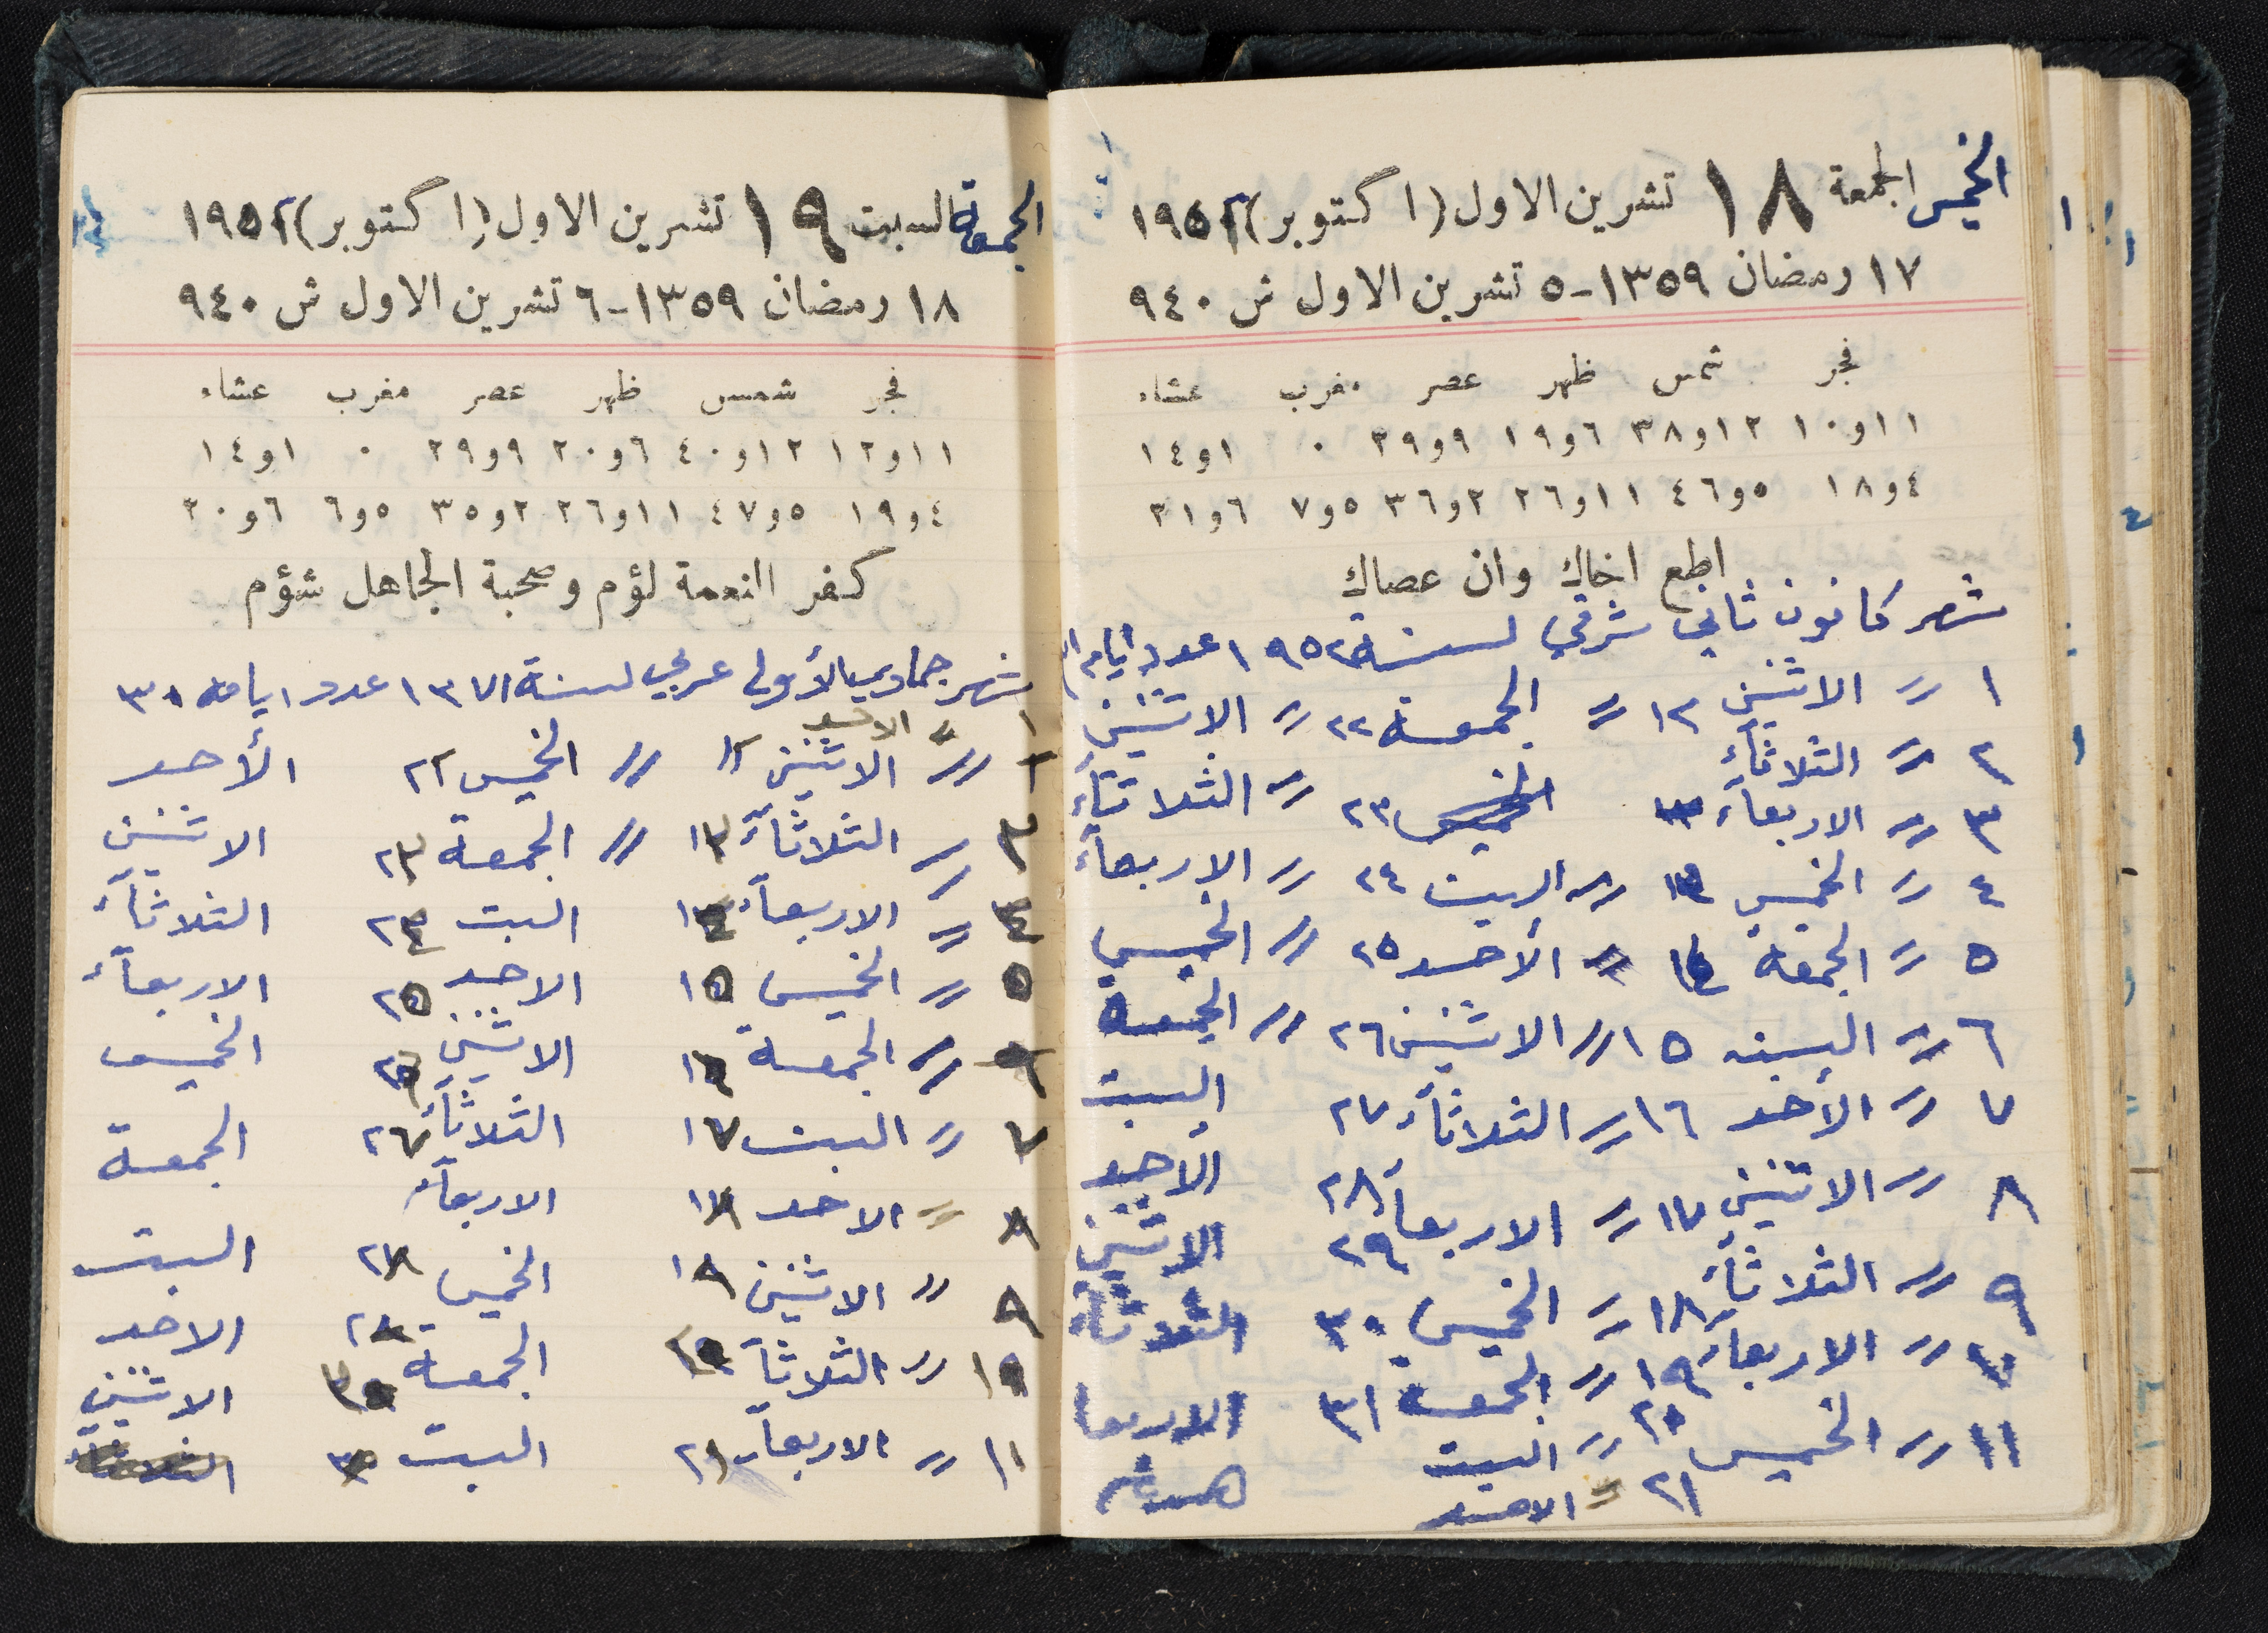 الخميس الجمعة ١٨ تشرين الاول (اكتوبر) ١٩٥١
١٧ رمضان ١٣٥٩ - ٥ تشرين الاول ش ٩٤٠
فجر شمس ظهر عصر مغرب عشاء
١١و١٠ ١٢و٣٨ ٦و١٩ ٩و٢٩ ٠ ١و١٤
٤و١٨ ٥و٤٦ ١١و٢٦ ٢و٣٦ ٥و٧ ٦و٢١
اطع اخاك وان عصاك
شهر كانون ثاني شرقي لسنة ١٩٥٢ عدد ايامه ٣١
١〃 الاثنين ١٢〃 الجمعة ٢٢〃 الاثنين
٢〃 الثلاثآء الخميس ٢٣〃 الثلاثآء
٣〃 الاربعآء
٤〃 الخميس ١٣〃 السبت ٢٤〃 الاربعآء
٥〃 الجمعة ١٤〃 الأحد ٢٥〃 الخميس
٦〃 السبت ١٥〃 الاثنين ٢٦〃 الجمعة
٧〃 الأحد ١٦〃 الثلاثآء ٢٧ السبت
٨〃 الاثنين ١٧〃 الاربعآء ٢٨ الأحد
٩〃 الثلاثآء ١٨〃 الخميس ٢٩ الاثنين
١٠〃 الاربعآء ١٩〃 الجمعة ٣٠ الثلاثآء
١١〃 الخميس ٢٠〃 السبت ٣١ الاربعا
٢١〃 الاحد
الجمعة السبت ١٩ تشرين الاول (اكتوبر) ١٩٥١
١٨ رمضان ١٣٥٩ - ٦ تشرين الاول ش ٩٤٠
فجر شمس ظهر عصر مغرب عشاء
١١و١٢ ١٢و٤٠ ٦و٢٠ ٩و٢٩ ٠ ١و١٤
٤و١٩ ٥و٤٧ ١١و٢٦ ٢و٣٥ ٥و٦ ٦و٢٠
كفر النعمة لؤم وصحبة الجاهل شؤم
شهر جمادى الأولى عربي لسنة ١٣٧١ عدد ايامه ٣٠
١〃 الاحد
٢〃 الاثنين ١٢〃 الخميس ٢٢ الأحد
٣〃 الثلاثآء ١٣〃 الجمعة ٢٣ الاثنين
٤〃 الاربعآء ١٤ السبت ٢٤ الثلاثآء
٥〃 الخميس ١٥ الاحد ٢٥ الاربعآء
٦〃 الجمعة ١٦ الاثنين ٢٦ الخميس
٧〃 السبت ١٧ الثلاثآء ٢٧ الجمعة
٨〃 الاحد ١٨ الاربعآء ٢٨ السبت
٩〃 الاثنين ١٩ الخميس ٢٩ الاحد
١٠〃 الثلاثآء ٢٠ الجمعة ٣٠ الاثنين
١١〃 الاربعآء ٢١ السبت